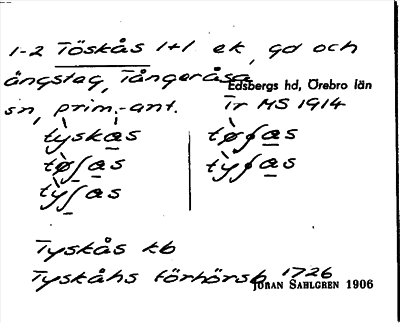 1-2 Töskås 1+1 ek, gd och
ångsteg, Tångeråsa
Edsbergs hd, Örebro län
sn, prim.-ant.
Tr MS 1914
tyskas
tø∫as
ty∫as
tø∮as
ty∮as
Tyskås kb
Tyskåhs förhörsb 1726
JÖRAN SAHLGREN 1906